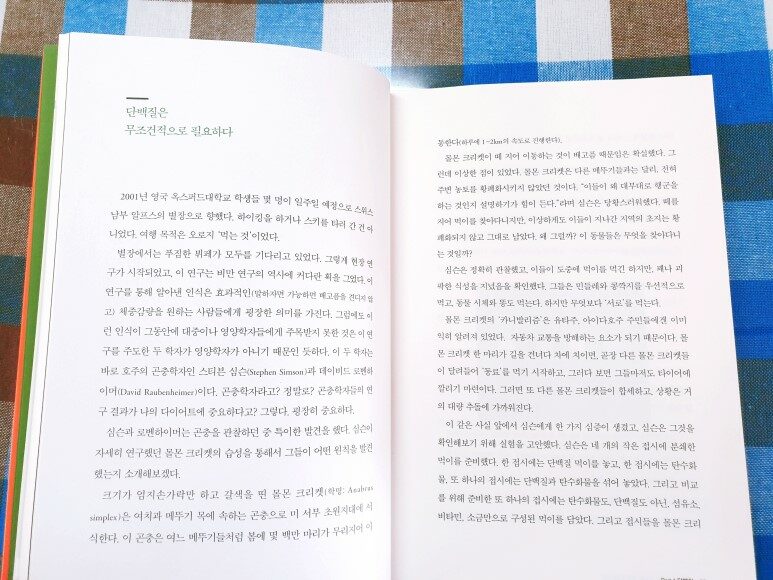 단백질은
무조건적으로 필요하다
2001년 영국 옥스퍼드대학교 학생들 몇 명이 일주일 예정으로 스위스
남부 알프스의 별장으로 향했다. 하이킹을 하거나 스키를 타러 간 건 아
니었다. 여행 목적은 오로지 '먹는 것'이었다.
별장에서는 푸짐한 뷔페가 모두를 기다리고 있었다. 그렇게 현장 연
구가 시작되었고, 이 연구는 비만 연구의 역사에 커다란 획을 그었다. 이
연구를 통해 알아낸 인식은 효과적인(말하자면 가능하면 배고픔을 견디지 않
고) 체중감량을 원하는 사람들에게 굉장한 의미를 가진다. 그럼에도 이
런 인식이 그동안에 대중이나 영양학자들에게 주목받지 못한 것은 이 연
구를 주도한 두 학자가 영양학자가 아니기 때문인 듯하다. 이 두 학자는
바로 호주의 곤충학자인 스티븐 심슨(Stephen Simson)과 데이비드 로벤하
이머(David Raubenheimer)이다. 곤충학자라고? 정말로? 곤충학자들의 연
구 결과가 나의 다이어트에 중요하다고? 그렇다. 굉장히 중요하다.
심슨과 로벤하이머는 곤충을 관찰하던 중 특이한 발견을 했다. 심슨이
자세히 연구했던 몰몬 크리켓의 습성을 통해서 그들이 어떤 원칙을 발견
했는지 소개해보겠다.
크기가 엄지손가락만 하고 갈색을 띤 몰몬 크리켓(학명: Anabrus
simplex)은 여치과 메뚜기 목에 속하는 곤충으로 미 서부 초원지대에 서
식한다. 이 곤충은 여느 메뚜기들처럼 봄에 몇 백만 마리가 무리지어 이
동한다(하루에 1~2km의 속도로 진행한다).
몰몬 크리켓이 떼 지어 이동하는 것이 배고픔 때문임은 확실했다. 그
런데 이상한 점이 있었다. 몰몬 크리켓은 다른 메뚜기들과는 달리, 전혀
주변 농토를 황폐화시키지 않았던 것이다. "이들이 왜 대무대로 행군을
하는 것인지 설명하기가 힘이 든다."라며 심슨은 당황스러워했다. 떼를
지어 먹이를 찾아다니지만, 이상하게도 이들이 지나간 지역의 초지는 황
폐화되지 않고 그대로 남았다. 왜 그럴까? 이 동물들은 무엇을 찾아다니
는 것일까?
심슨은 정확히 관찰했고, 이들이 도중에 먹이를 먹긴 하지만, 꽤나 괴
팍한 식성을 지녔음을 확인했다. 그들은 민들레와 콩깍지를 우선적으로
먹고, 동물 시체와 똥도 먹는다. 하지만 무엇보다 '서로'를 먹는다.
몰몬 크리켓의 '카니발리즘'은 유타주, 아이다호주 주민들에겐 이미
익히 알려져 있었다. 자동차 교통을 방해하는 요소가 되기 때문이다. 몰
몬 크리켓 한 마리가 길을 건너다 차에 치이면, 곧장 다른 몰몬 크리켓들
이 달려들어 '동료'를 먹기 시작하고, 그러다 보면 그들마저도 타이어에
깔리기 마련이다. 그러면 또 다른 몰몬 크리켓들이 합세하고, 상황은 거
의 대량 추돌에 가까워진다.
이 같은 사실 앞에서 심슨에게 한 가지 심증이 생겼고, 심슨은 그것을
확인해보기 위해 실험을 고안했다. 심슨은 네 개의 작은 접시에 분쇄한
먹이를 준비했다. 한 접시에는 단백질 먹이를 놓고, 한 접시에는 탄수화
물, 또 하나의 접시에는 단백질과 탄수화물을 섞어 놓았다. 그리고 비교
를 위해 준비한 또 하나의 접시에는 탄수화물도, 단백질도 아닌, 섬유소,
비타민, 소금만으로 구성된 먹이를 담았다. 그리고 접시들을 몰몬 크리